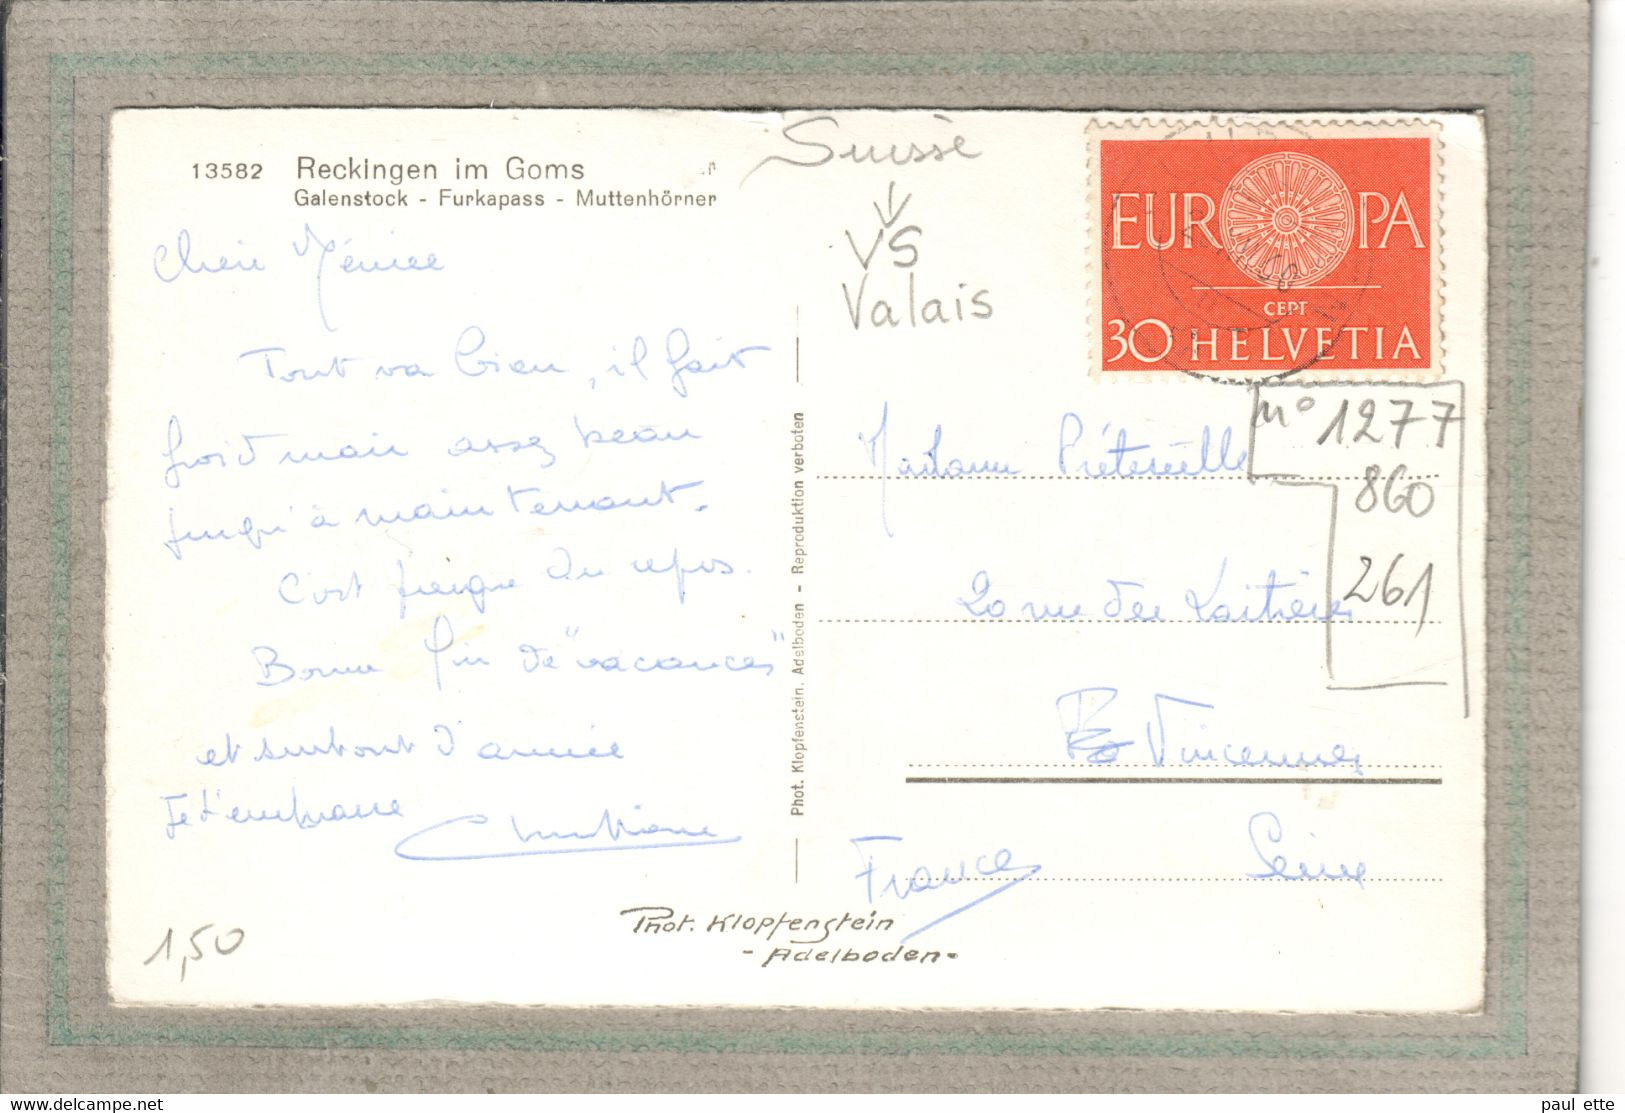 13582 Reckingen im Goms
Galenstock - Furkapass - Muttenhörner
Suisse
VS
Valais
EUROPA
CEPT
30 HELVETIA
Tout va bien, il fait
froid mais assez beau
jusqu'à maintenant.
C'est presque du repos.
Bonne fin de "vacances"
et surtout d'année
Je t'embrasse Christiane
Phot. Klopfenstein, Adelboden - Reproduktion verboten
Madame
20 rue des Laitières
Vincennes
Seine
France
n° 1277
860
261
Phot. Klopfenstein
- Adelboden -
1,50
paul ette